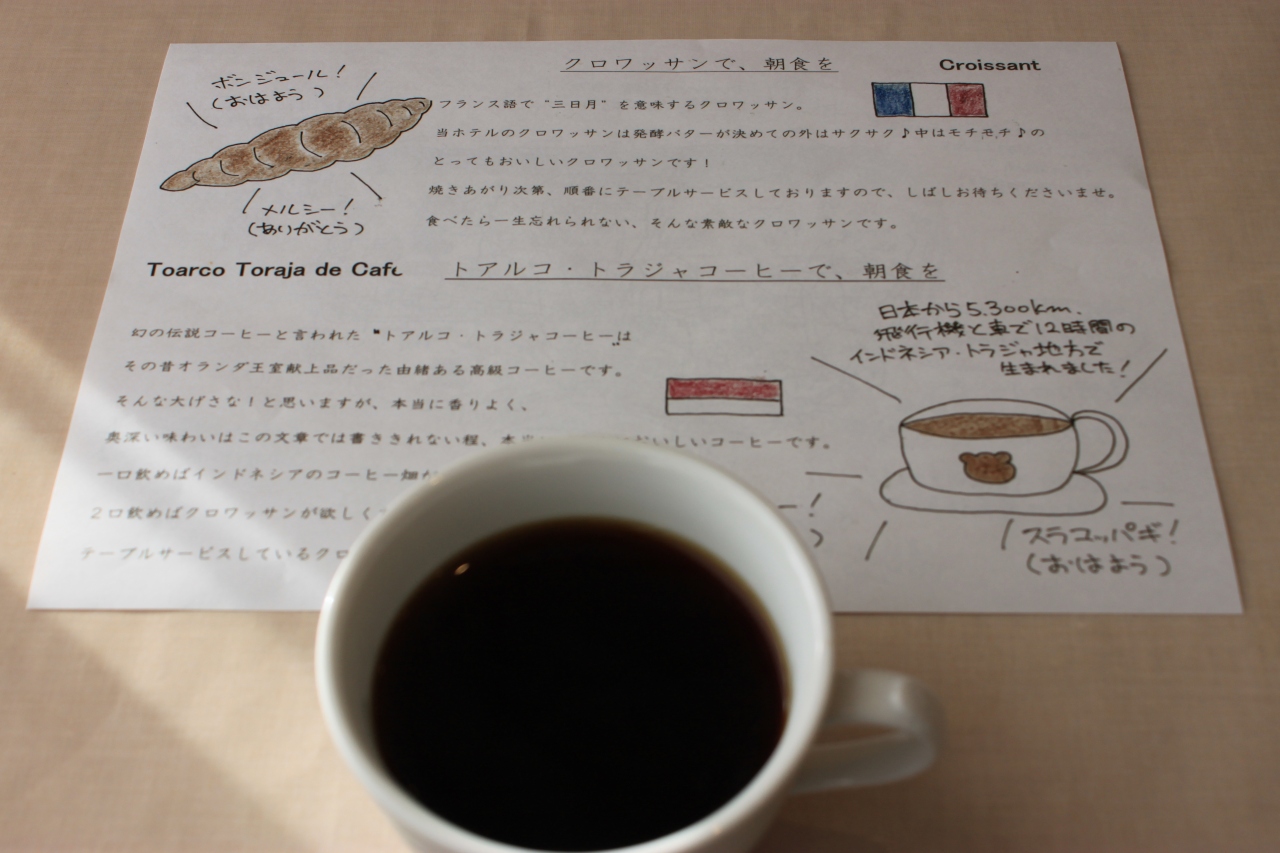 クロワッサンで、朝食を
Croissant
ボンジュール!
(おはよう)
フランス語で"三日月"を意味するクロワッサン。
当ホテルのクロワッサンは発酵バターが決めての外はサクサク♪中はモチモチ♪の
とってもおいしいクロワッサンです!
焼きあがり次第、順番にテーブルサービスしておりますので、しばしお待ちくださいませ。
食べたら一生忘れられない、そんな素敵なクロワッサンです。
メルシー!
(ありがとう)
Toarco Toraja de Cafe
トアルコ・トラジャコーヒーで、朝食を
幻の伝説コーヒーと言われた"トアルコ・トラジャコーヒー"は
その昔オランダ王室献上品だった由緒ある高級コーヒーです。
そんな大げさな!と思いますが、本当に香りよく、
奥深い味わいはこの文章では書ききれない程、本当 おいしいコーヒーです。
一口飲めばインドネシアのコーヒー畑が
2口飲めばクロワッサンが欲しく
テーブルサービスしているクロ
日本から5.300km.
飛行機と車で12時間の
インドネシア・トラジャ地方で
生まれました!
ー!
)
スラマッパギ!
(おはよう)